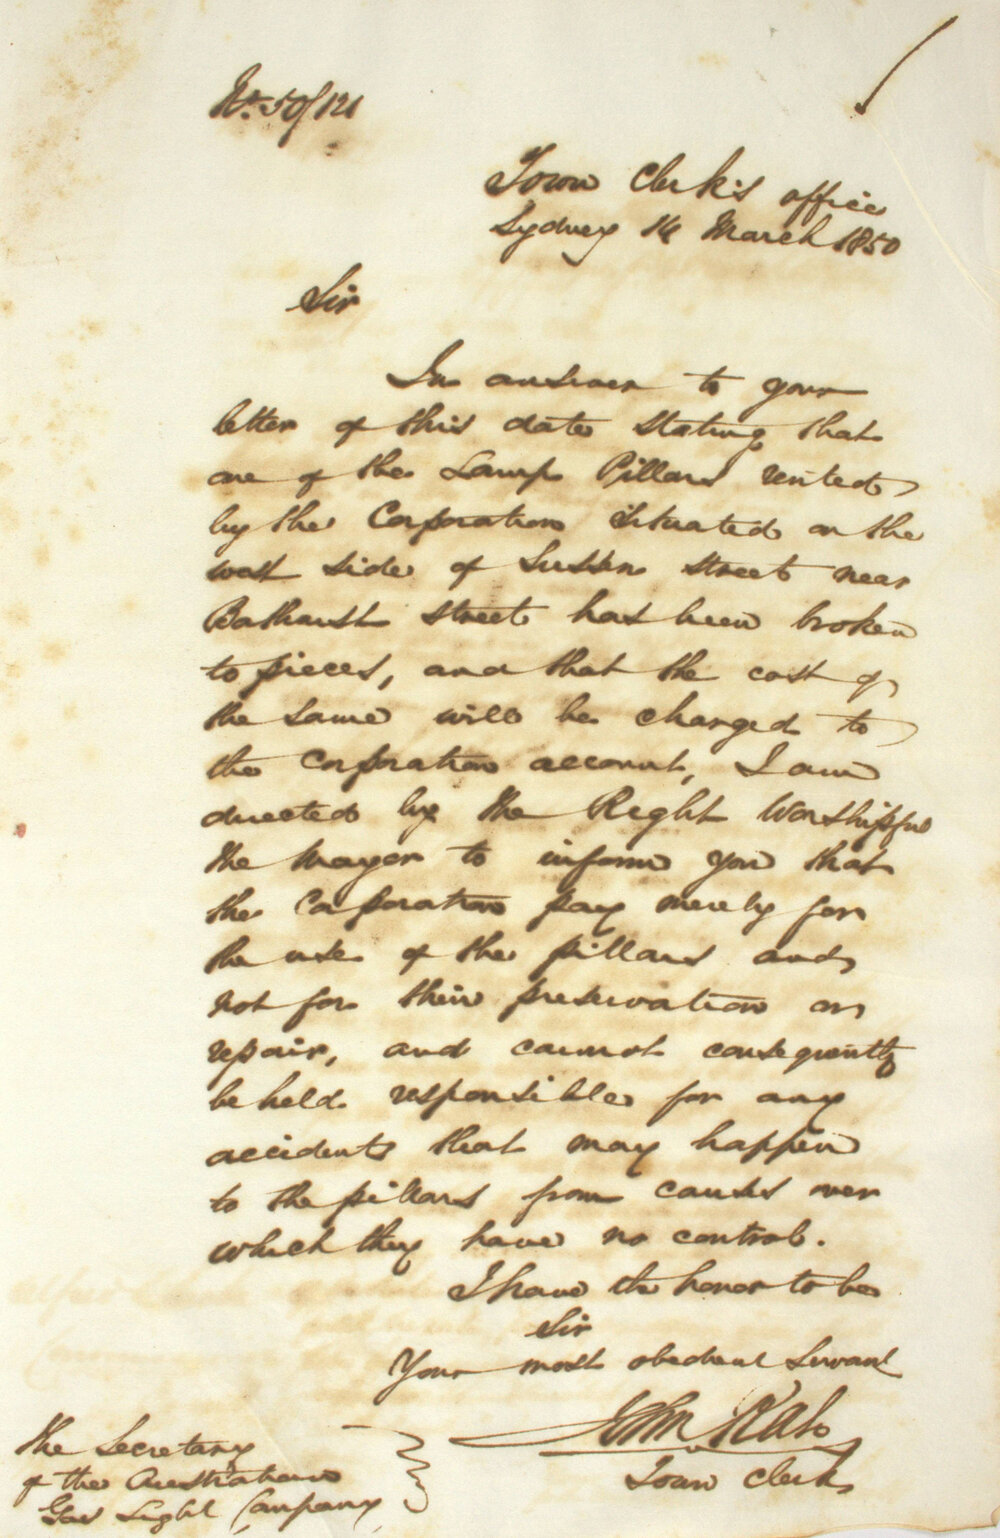 No. 50/121
Town Clerk's office
Sydney 14 March 1850
Sir
In answer to your
letter of this date stating that
one of the Lamp Pillars rented
by the Corporation situated on the
west side of Sussex street near
Bathurst street has been broken
to pieces, and that the cost of
the same will be charged to
the Corporation account, I am
directed by the Right Worshipful
the Mayor to inform you that
the Corporation pay merely for
the use of the pillars and
not for their preservation or
repair, and cannot consequently
be held responsible for any
accidents that may happen
to the pillars from causes over
which they have no control.
I have the honor to be
Sir
Your most obedient Servant
John
Town Clerk
The Secretary
of the Australian
Gas Light Company